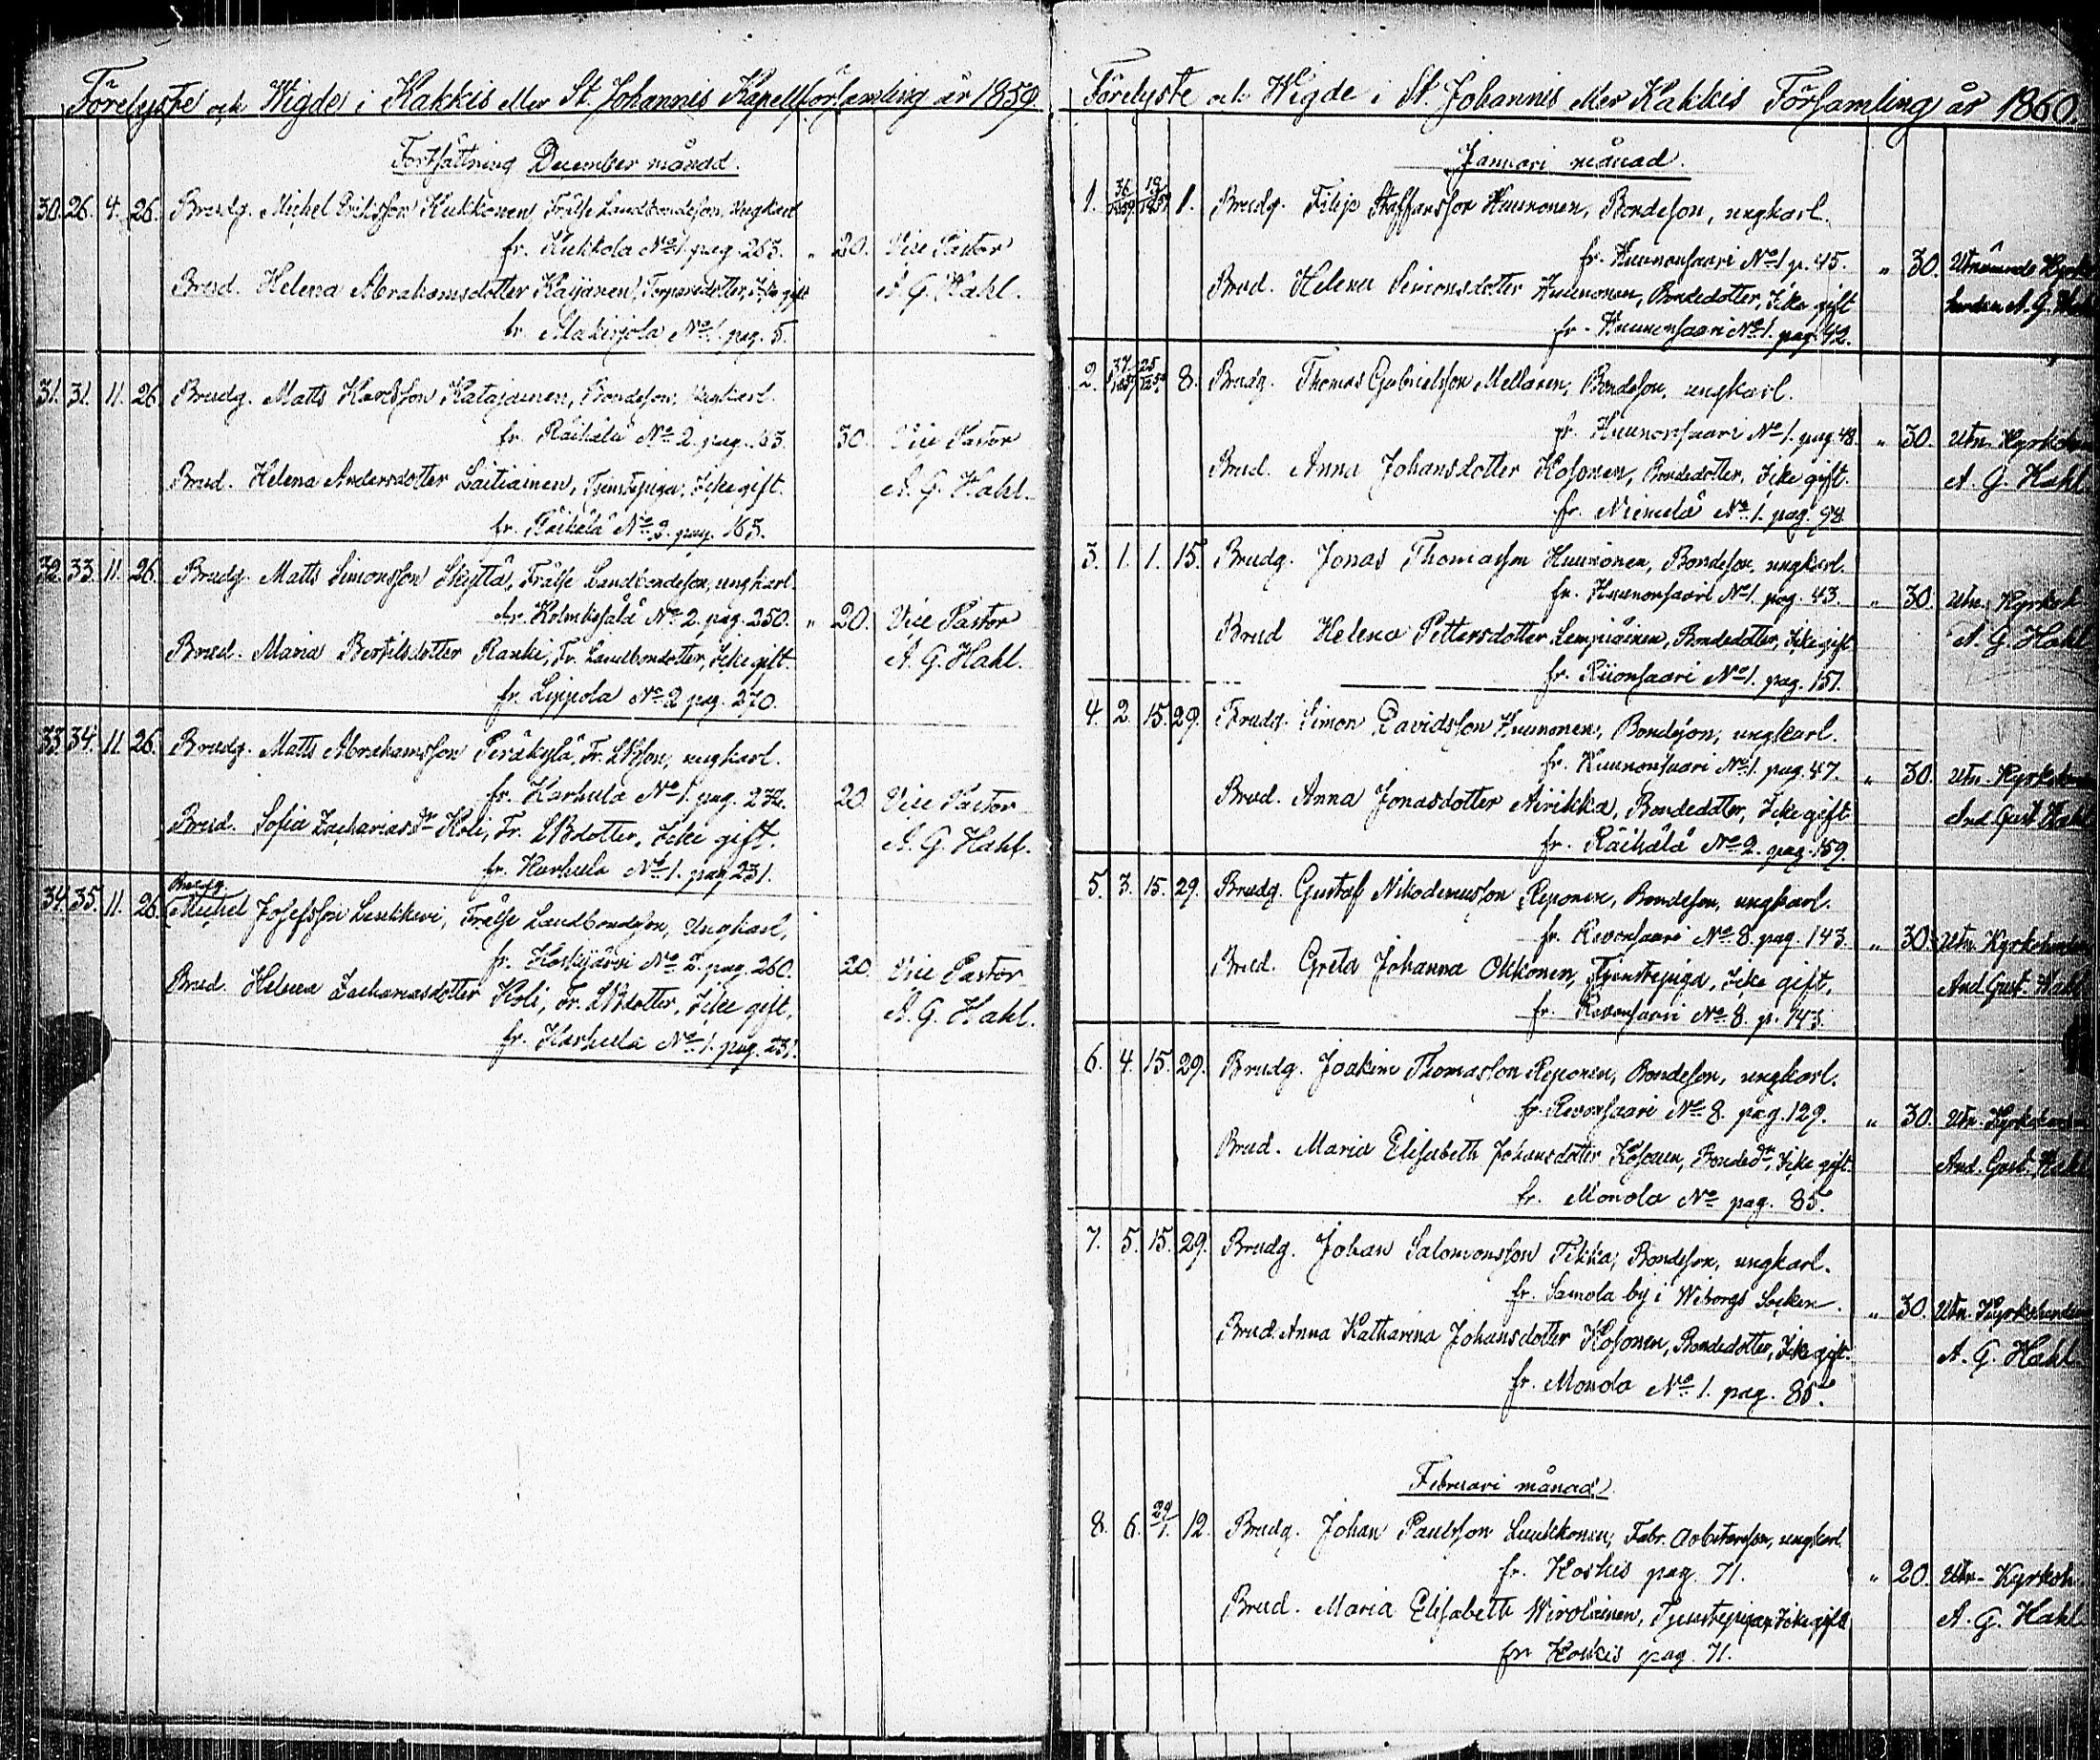 Förelyste och Wigde i Kakkis eller St. Johannis Kapellförsamling år 1859
Fortsättning December månad.
30. 26. 4. 26. Brudg. Michel Eriksson Kukkonen Frälse Landbondeson, Ungkarl
fr. Kukkola No 1. pag. 263. " 20. Vice Pastor
Brud. Helena Abrahamsdotter Käyänen, Torparedotter, Icke gift A. G. Hahl.
fr. Makirjola No 1. pag. 5.
31. 31. 11. 26. Brudg. Matts Karlsson Katajainen, Bondeson, Ungkarl.
fr. Räihälä No 2. pag. 30. Vice Pastor
Brud. Helena Andersdotter Laitiainen, Tjenstepiga, Icke gift. A. G. Hahl.
fr. Räihälä No pag. 165.
32. 33. 11. 26. Brudg. Matts Simonsson Skyttä, Frälse Landbondeson, ungkarl.
fr. Kolmikesälä No 2. pag. 250. " 20. Vice Pastor
Brud. Maria Bertilsdotter Ranki, Fr. Landbondotter, Icke gift. A. G. Hahl.
fr. Lippola No 2 pag. 270.
33. 34. 11. 26. Brudg. Matts Abrahamsson Peräkylä, Fr. LBson, ungkarl.
fr. Karhula No 1. pag. 232. 20. Vice Pastor
Brud. Sofia Zachariasdr Koli, Fr. LBdotter, Icke gift. A. G. Hahl.
fr. Karhula No 1. pag 231.
Brudg.
34. 35. 11. 26. Michel Josefsson Leskkevi, Frälse Landbondeson, Ungkarl,
fr. Koskijärvi No 2. pag. 260. 20. Vice Pastor
Brud. Helena Zachariasdotter Koli, Fr. LBdotter, Icke gift, A. G. Hahl.
fr. Karhula No 1. pag. 231.
Förelyste och Wigde i St. Johannis eller Kakkis Församling år 1860.
Januari månad.
1. 36/1859 18/1859 1. Brudg. Filip Staffansson Kuunonen, Bondeson, ungkarl.
fr. Kuunonsaari No 1 p. 45. " 30. Utnämnde Kyrko
Brud. Helena Simonsdotter Kuunonen, Bondedotter, Icke gift herden A. G. Hahl
fr. Kuunonsaari No 1. pag. 42.
2. 37/1859 25/1859 8. Brudg. Thomas Gabrielsson Mellanen, Bondeson, ungkarl.
fr. Kuunonsaari No 1. pag. 48. " 30. Utn. Kyrkoh
Brud. Anna Johansdotter Kosonen, Bondedotter, Icke gift. A. G. Hahl
fr. Niemelä No 1. pag. 98
3. 1. 1. 15. Brudg. Jonas Thomasson Kuunonen, Bondeson, ungkarl.
fr. Kuunonsaari No 1. pag. 43. " 30. Utn. Kyrkoh
Brud Helena Pettersdotter Lempiäinen, Bondedotter, Icke gift A. G. Hahl
fr. Riionsaari No 1. pag. 151.
4. 2. 15. 29. Brudg. Simon Davidsson Kuunonen, Bondeson, ungkarl.
fr. Kuunonsaari No 1. pag. 47. " 30. Utn. Kyrkoh
Brud. Anna Jonasdotter Airikka, Bondedotter, Icke gift And. Gust. Hahl
fr. Räihälä No 2. pag. 159
5. 3. 15. 29. Brudg. Gustaf Nikodemusson Reponen, Bondeson, ungkarl.
fr. Revonsaari No 8. pag. 143. " 30. Utn. Kyrkoherden
Brud. Greta Johanna Okkonen, Tjenstepiga, Icke gift, And. Gust. Hahl
fr. Revonsaari No 8. p. 143.
6. 4. 15. 29. Brudg. Joakim Thomasson Reponen, Bondeson, ungkarl.
fr. Revonsaari No 8. pag. 129. " 30. Utn. Kyrkoherden
Brud. Maria Elisabeth Johansdotter Kosonen, Bondedr, Icke gift. And. Gust. Hahl
fr. Monola No pag. 85.
7. 5. 15. 29. Brudg. Johan Salomonsson Tikka, Bondeson, ungkarl.
fr. Samola by i Wiborgs Socken. " 30. Utn. Kyrkoherden
Brud. Anna Katharina Johansdotter Kosonen, Bondedotter, Icke gift. A. G. Hahl
fr. Monola No 1. pag. 85.
Februari månad
8. 6. 29/1. 12. Brudg. Johan Paulsson Luukkonen, Fabr. Arbetareson, ungkarl
fr. Koskis pag. 71. " 20. Utn. Kyrkoh.
Brud. Maria Elisabeth Wirolainen, Tjenstepiga, Icke gift A. G. Hahl
fr Koskis pag. 71.